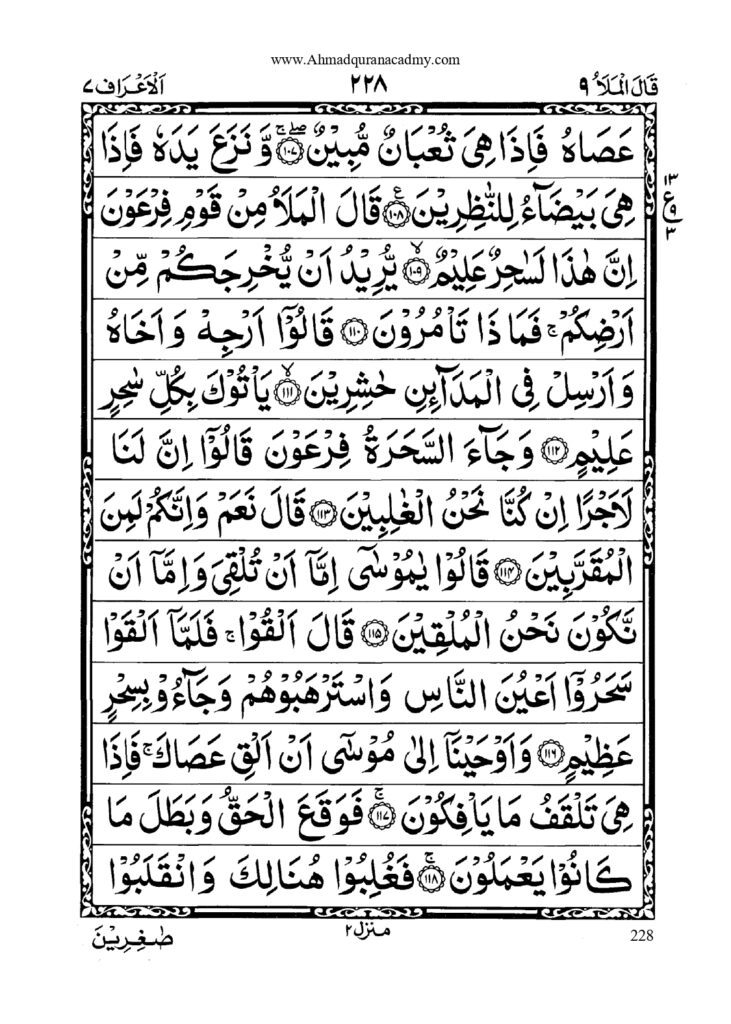 www.Ahmadquranacadmy.com
قَالَ الْمَلَاُ ٩
٢٢٨
اَلْاَعْرَاف ٧
عَصَاهُ فَاِذَا هِىَ ثُعْبَانٌ مُّبِيْنٌ ۚۖ ١٠٧ وَّ نَزَعَ يَدَهٗ فَاِذَا
١٣
هِىَ بَيْضَآءُ لِلنّٰظِرِيْنَ ۧ ١٠٨ قَالَ الْمَلَاُ مِنْ قَوْمِ فِرْعَوْنَ
ع
٩
٣
اِنَّ هٰذَا لَسٰحِرٌ عَلِيْمٌ ۙ ١٠٩ يُّرِيْدُ اَنْ يُّخْرِجَكُمْ مِّنْ
اَرْضِكُمْ ۚ فَمَا ذَا تَاْمُرُوْنَ ١١٠ قَالُوْٓا اَرْجِهْ وَ اَخَاهُ
وَ اَرْسِلْ فِى الْمَدَآئِنِ حٰشِرِيْنَ ۙ ١١١ يَاْتُوْكَ بِكُلِّ سٰحِرٍ
عَلِيْمٍ ١١٢ وَ جَآءَ السَّحَرَةُ فِرْعَوْنَ قَالُوْٓا اِنَّ لَنَا
لَاَجْرًا اِنْ كُنَّا نَحْنُ الْغٰلِبِيْنَ ١١٣ قَالَ نَعَمْ وَاِنَّكُمْ لَمِنَ
الْمُقَرَّبِيْنَ ١١٤ قَالُوْا يٰمُوْسٰٓى اِمَّآ اَنْ تُلْقِىَ وَ اِمَّآ اَنْ
نَّكُوْنَ نَحْنُ الْمُلْقِيْنَ ١١٥ قَالَ اَلْقُوْا ۚ فَلَمَّآ اَلْقَوْا
سَحَرُوْٓا اَعْيُنَ النَّاسِ وَاسْتَرْهَبُوْهُمْ وَ جَآءُوْ بِسِحْرٍ
عَظِيْمٍ ١١٦ وَ اَوْحَيْنَآ اِلٰى مُوْسٰٓى اَنْ اَلْقِ عَصَاكَ ۚ فَاِذَا
هِىَ تَلْقَفُ مَا يَاْفِكُوْنَ ۚ ١١٧ فَوَقَعَ الْحَقُّ وَ بَطَلَ مَا
كَانُوْا يَعْمَلُوْنَ ۚ ١١٨ فَغُلِبُوْا هُنَالِكَ وَ انْقَلَبُوْا
صٰغِرِيْنَ
منزل ٢
228